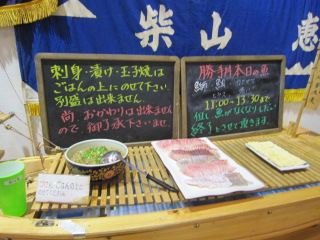 柴山
恵
刺身・漬け・玉子焼は
ごはんの上にのせて下さい
別盛は出来ません
尚 おかわりは出来ません
ので、御了承下さいませ
勝手丼本日の魚
11:00〜13:30まで
但し魚がなくなりしだい
終了とさせて頂きます。